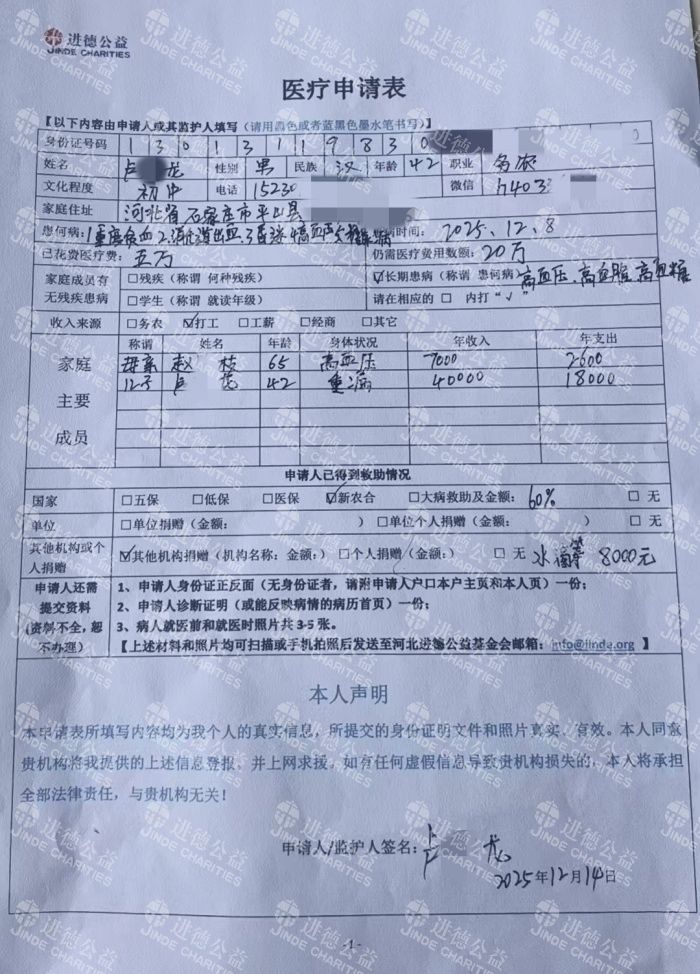 进德公益
JINDE CHARITIES
医疗申请表
【以下内容由申请人或其监护人填写（请用黑色或者蓝黑色墨水笔书写）】
身份证号码 1 3 0 1 3 1 1 9 8 3 0
姓名 卢 龙 性别 男 民族 汉 年龄 42 职业 务农
文化程度 初中 电话 15230 微信 h403
家庭住址 河北省石家庄市平山县
患何病: 1重度贫血 2.消化道出血 3 4高血压 糖尿病 时间: 2025.12.8
已花费医疗费: 五万 仍需医疗费用数额: 20万
家庭成员有无残疾患病 □残疾（称谓 何种残疾） ☑长期患病（称谓 患何病） 高血压、高血脂、高血糖
□学生（称谓 就读年级） 请在相应的 □ 内打“√”
收入来源 □务农 ☑打工 □工薪 □经商 □其它
家庭主要成员 称谓 姓名 年龄 身体状况 年收入 年支出
母亲 赵 枝 65 高血压 7000 2600
卢 龙 42 重病 40000 18000
申请人已得到救助情况
国家 □五保 □低保 □医保 ☑新农合 □大病救助及金额: 60% □ 无
单位 □单位捐赠（金额: ） □单位个人捐赠（金额: ） □ 无
其他机构或个人捐赠 ☑其他机构捐赠（机构名称: 金额:） □个人捐赠（金额:） □ 无 水滴筹 8000元
申请人还需提交资料（资料不全，恕不办理）
1、申请人身份证正反面（无身份证者，请附申请人户口本户主页和本人页）一份；
2、申请人诊断证明（或能反映病情的病历首页）一份；
3、病人就医前和就医时照片共 3-5 张。
【上述材料和照片均可扫描或手机拍照后发送至河北进德公益基金会邮箱: info@jinde.org 】
本人声明
本申请表所填写内容均为我个人的真实信息，所提交的身份证明文件和照片真实、有效。本人同意
贵机构将我提供的上述信息登报、并上网求援。如有任何虚假信息导致贵机构损失的，本人将承担
全部法律责任，与贵机构无关！
申请人/监护人签名: 卢 龙
2025年12月14日
-1-